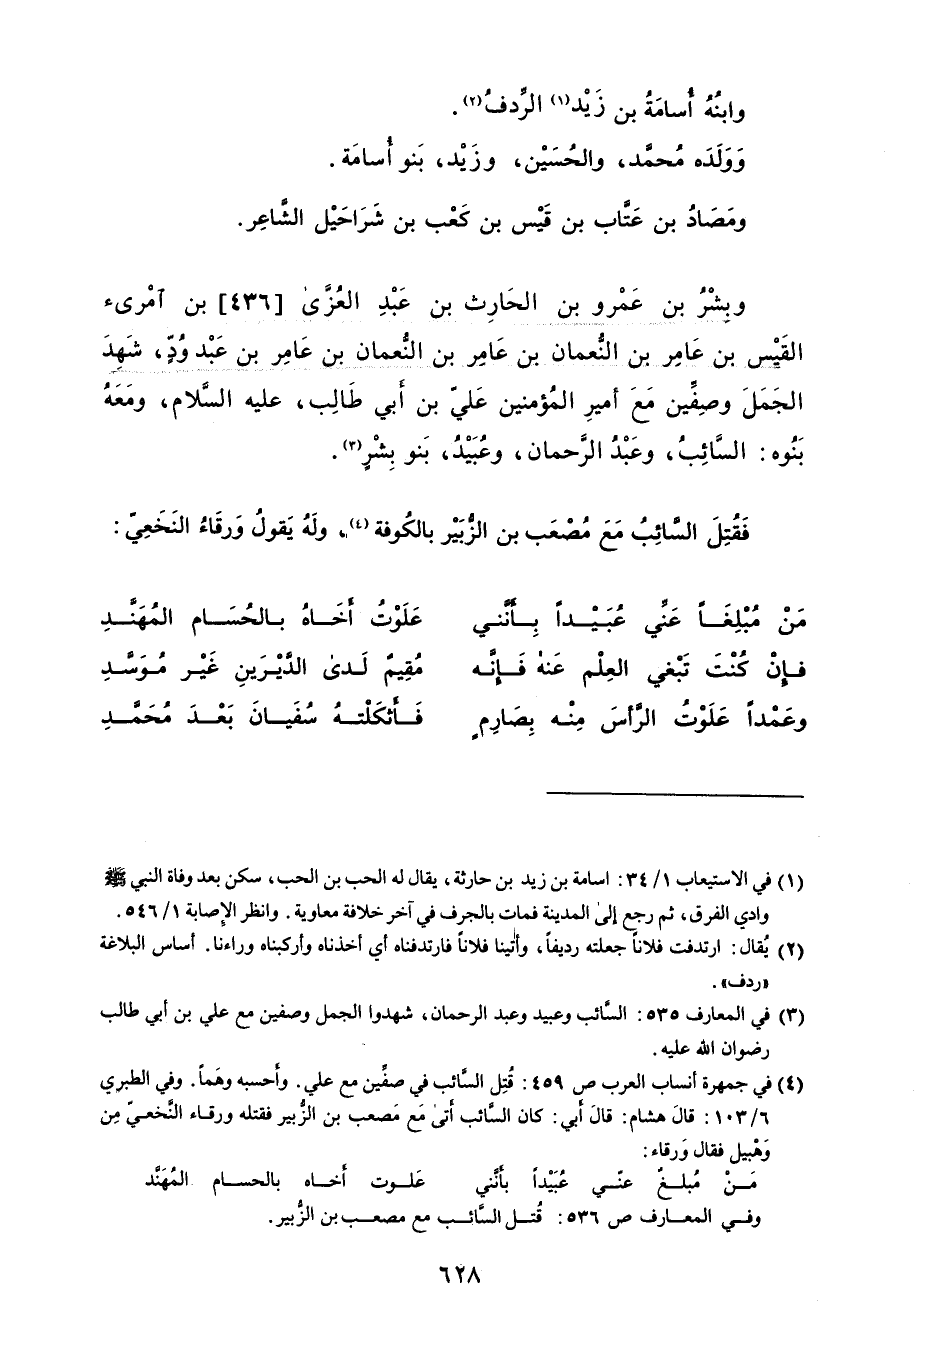 وابنُهُ أُسامَةُ بن زَيْد(١) الرِّدفُ(٢).
وَوَلَدَه مُحمَّد، والحُسَيْن، وزَيْد، بَنو أُسامَة.
ومَصَادُ بن عَتَّاب بن قَيْس بن كَعْب بن شَرَاحَيْل الشَّاعِر.
وبِشْرُ بن عَمْرو بن الحَارِث بن عَبْدِ العُزَّىٰ [٤٣٦] بن آمْرىء
القَيْس بن عَامِر بن النُّعمان بن عَامِر بن النُّعمان بن عَامِر بن عَبْد وُدٍّ، شَهِدَ
الجَمَلَ وصِفِّين مَعَ أميرِ المُؤمنين عَليّ بن أَبي طَالِب، عليه السَّلام، ومَعَهُ
بَنُوه: السَّائِبُ، وعَبْدُ الرَّحمان، وعُبَيْدُ، بَنو بِشْرٍ(٣).
فَقُتِلَ السَّائِبُ مَعَ مُصْعَب بن الزُّبَيْر بالكُوفة(٤)، ولَهُ يَقولُ وَرقَاءُ النَخَعِيّ:
مَنْ مُبْلِغَاً عَنِّي عُبَيْداً بِأَنَّني عَلَوْتُ أَخَاهُ بالحُسَام المُهَنَّدِ
فإنْ كُنْتَ تَبْغي العِلْم عَنهُ فَإِنَّه مُقِيمُ لَدىٰ الدَّيْرَينِ غَيْر مُوَسَّدِ
وعَمْداً عَلَوْتُ الرَّأسَ مِنْه بِصَارِمٍ فَأثكَلْتهُ سُفيانَ بَعْدَ مُحَمَّدِ
(١) في الاستيعاب ٣٤/١: اسامة بن زيد بن حارثة، يقال له الحب بن الحب، سكن بعد وفاة النبي ﷺ
وادي الفرق، ثم رجع إلىٰ المدينة فمات بالجرف في آخر خلافة معاوية. وانظر الإصابة ٥٤٦/١.
(٢) يُقال: ارتدفت فلاناً جعلته رديفاً، وأتينا فلاناً فارتدفناه أي أخذناه وأركبناه وراءنا. أساس البلاغة
«ردف».
(٣) في المعارف ٥٣٥: السَّائب وعبيد وعبد الرحمان، شهدوا الجمل وصفين مع علي بن أبي طالب
رضوان الله عليه.
(٤) في جمهرة أنساب العرب ص ٤٥٩: قُتِل السَّائب في صفِّين مع علي. وأحسبه وهَماً. وفي الطبري
١٠٣/٦: قالَ هشام: قالَ أبي: كان السَّائب أتىٰ مَع مَصعب بن الزُّبير فقتله ورقاء النَّخعيّ مِن
وَهْبيل فقال وَرقاء:
مَنْ مُبلغٌ عنّي عُبَيْداً بأَنَّني عَلوت أَخاه بالحسام المُهَنَّد
وفي المعارف ص ٥٣٦: قُتل السَّائب مع مصعب بن الزُّبير.
٦٢٨